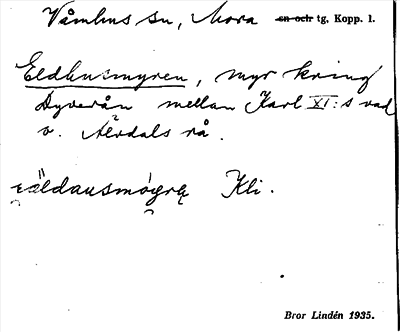 Våmhus sn, Mora sn och tg. Kopp. l.
Eldhusmyren, myr kring
Dyverån mellan Karl XI:s vad
o. Älvdals rå.
Kli.
Bror Lindén 1935.